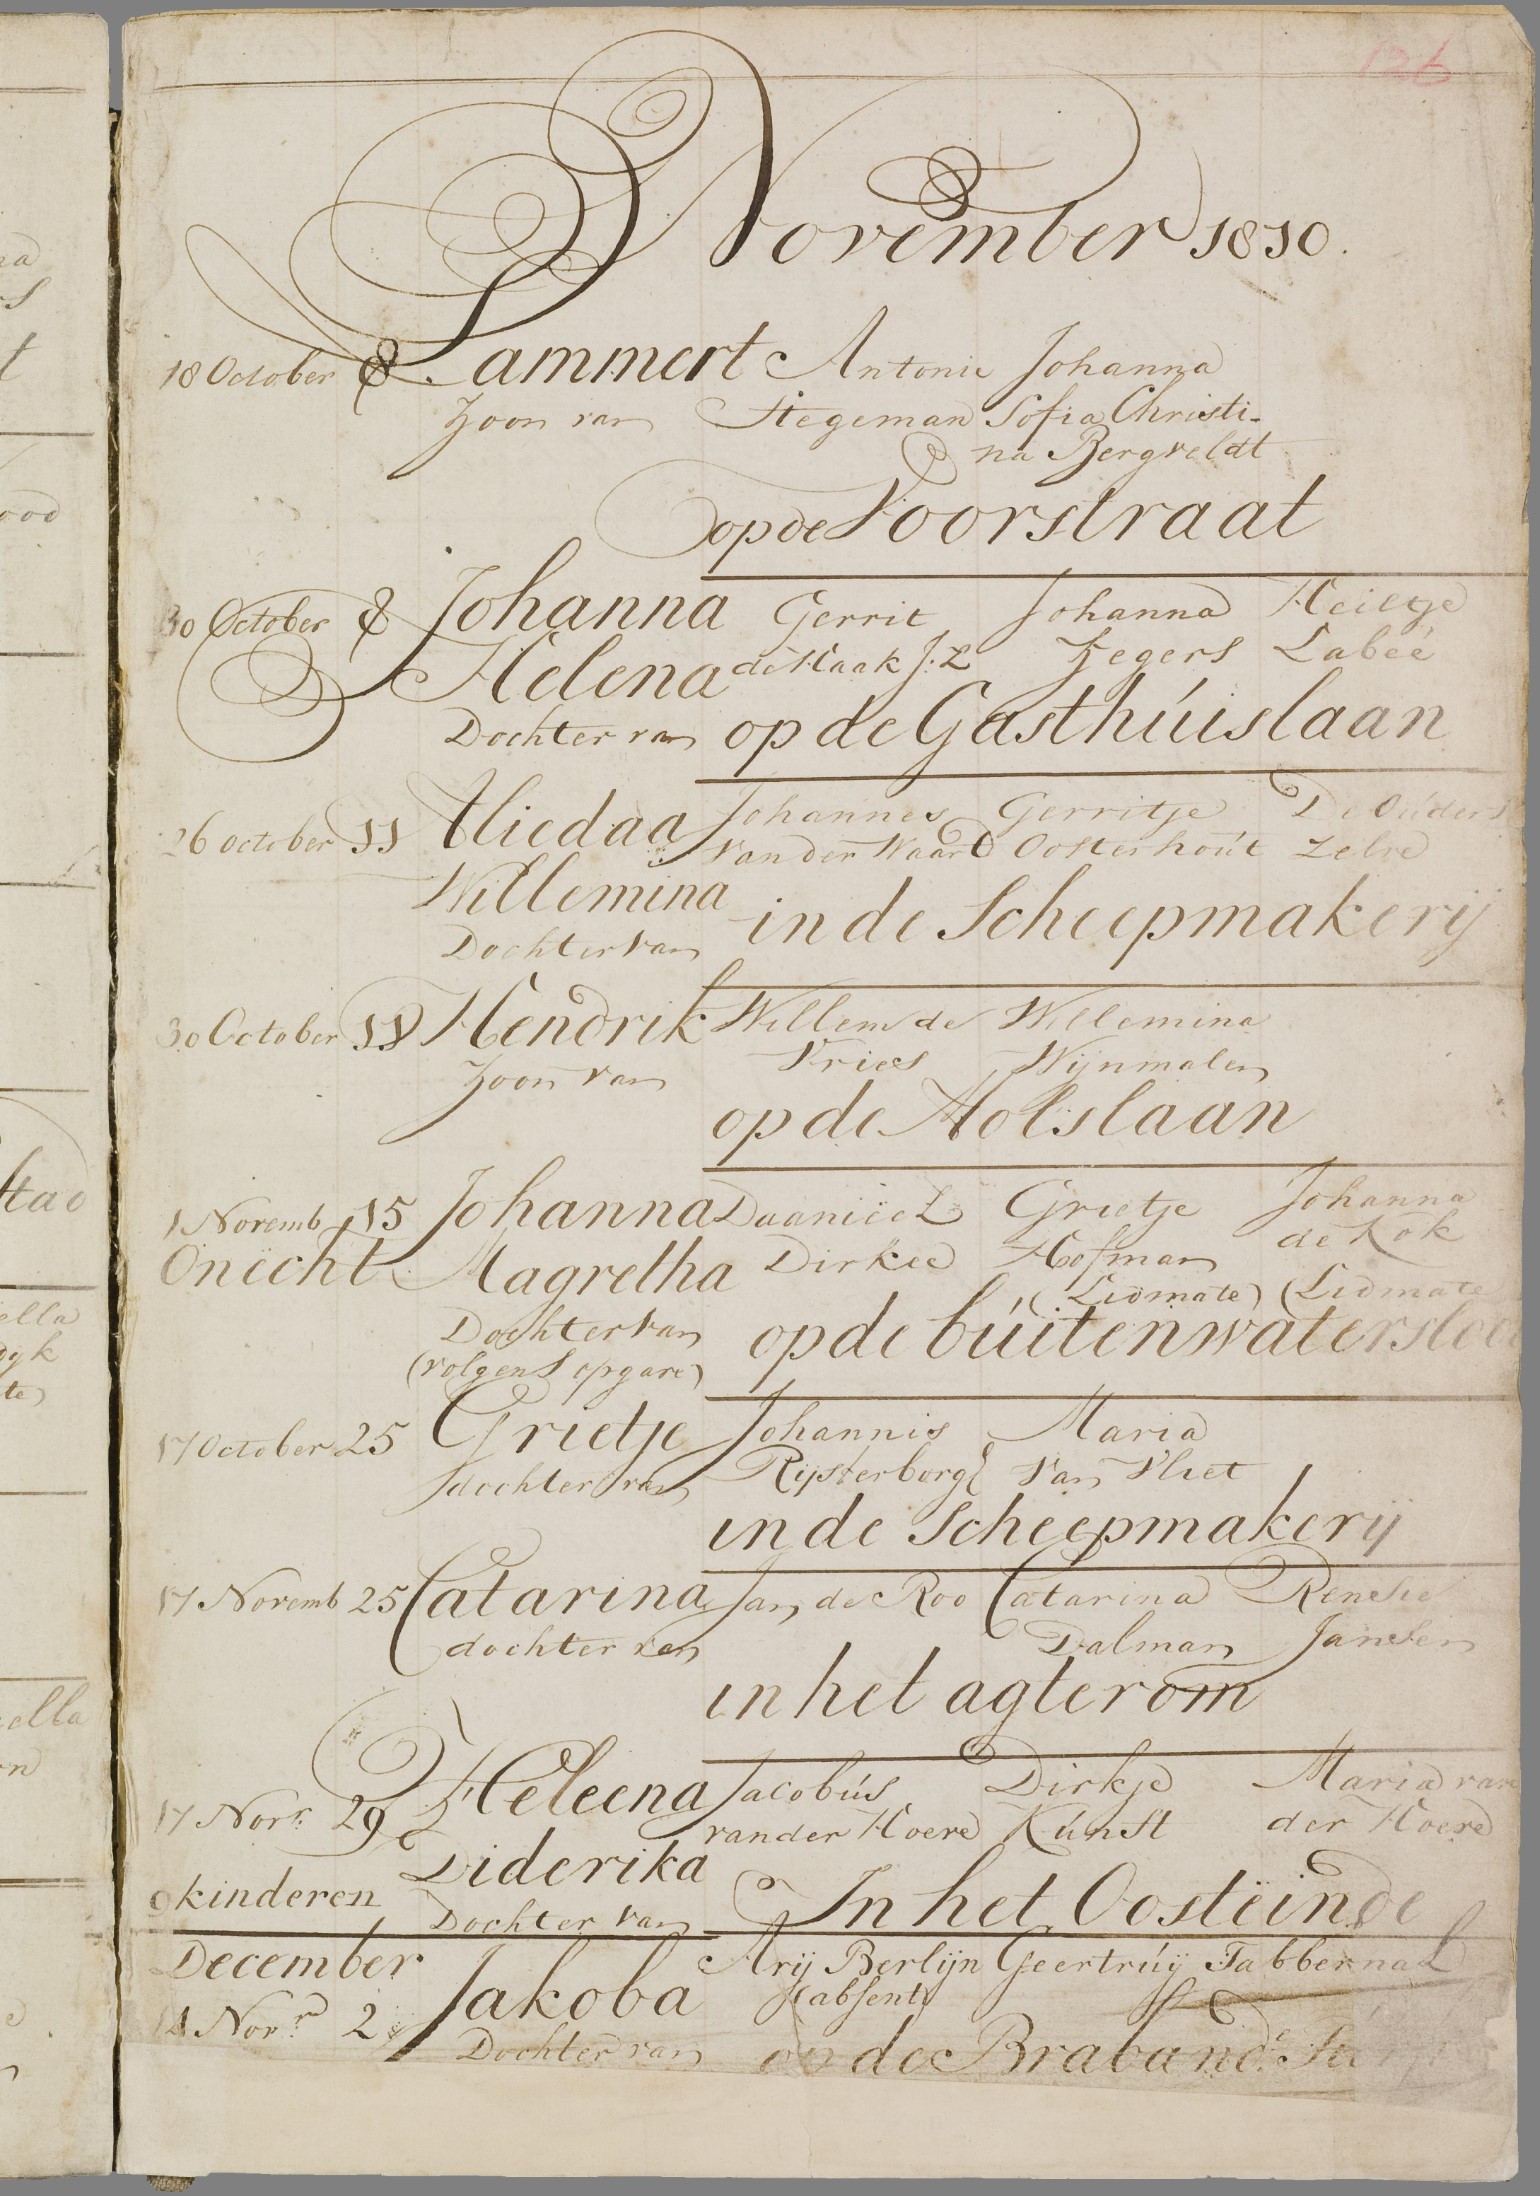 126
November 1810.
18 October 8 Lammert Antonie Johanna
Zoon van Stegeman Sofia Christi-
na Bergveldt
op de Voorstraat
30 October 8 Johanna Gerrit Johanna Heiltje
Helena de Haak J:Z Zegers Labeé
Dochter van op de Gasthúislaan
26 october 11 Aliedaa Johannes Gerritje De Oúders
Van der Waard Oosterhoút zelve
Willemina in de Scheepmakerij
Dochter van
30 October 11 Hendrik Willem de Willemina
Zoon van Vries Wijnmalen
op de Molslaan
1 Novemb 15 Johanna Daaniëel Grietje Johanna
Onëcht Magretha Dirkse Hofman de Kok
(Lidmate) (Lidmate
Dochter van op de búitenwatersloo
(volgens opgave)
17 October 25 Grietje Johannis Maria
dochter van Rijsterborgh van Vliet
in de Scheepmakerij
17 Novemb 25 Catarina Jan de Roo Catarina Rensie
dochter van Dalman Jansen
in het agterom
17 Novr. 29 Heleena Jacobús Dirkje Maria van
van der Hoeve Kúnst der Hoeve
Diderika
9 kinderen Dochter van In het Oosteinde
December Jakoba Arij Berlijn Geertrúij Tabbernal
14 Novr 2 (absent)
Dochter van op de Braband: